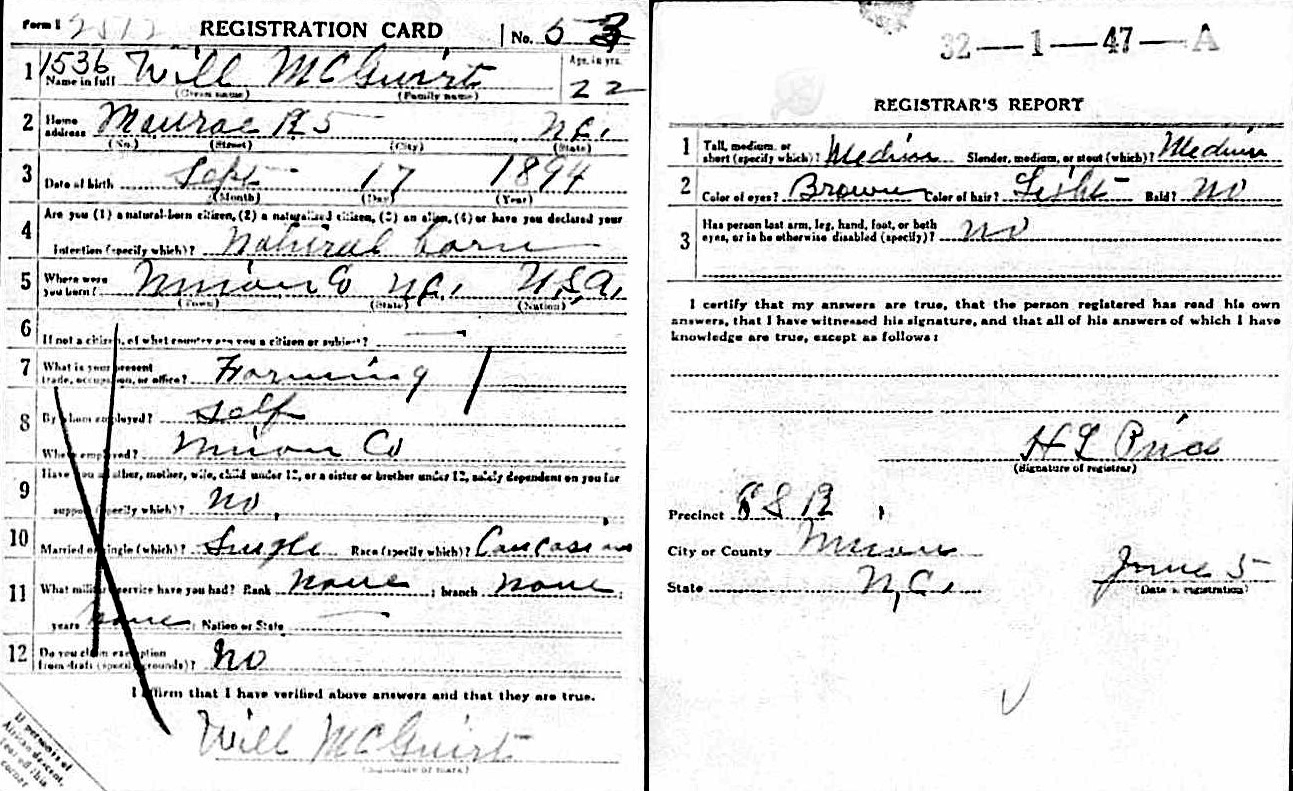 Form 1 2572 REGISTRATION CARD No. 53
1 1536 Name in full Will McGuirt Age, in yrs. 22
(Given name) (Family name)
2 Home address Monroe R 5 N.C.
(No.) (Street) (City) (State)
3 Date of birth Sept 17 1894
(Month) (Day) (Year)
4 Are you (1) a natural-born citizen, (2) a naturalized citizen, (3) an alien, (4) or have you declared your
intention (specify which)? Natural born
5 Where were you born? Union Co N.C. U.S.A.
(Town) (State) (Nation)
6 If not a citizen, of what country are you a citizen or subject?
7 What is your present trade, occupation, or office? Farming
8 By whom employed? Self
Where employed? Union Co
9 Have you a father, mother, wife, child under 12, or a sister or brother under 12, solely dependent on you for
support (specify which)? No
10 Married or single (which)? Single Race (specify which)? Caucasian
11 What military service have you had? Rank None ; branch None ;
years None ; Nation or State
12 Do you claim exemption from draft (specify grounds)? No
I affirm that I have verified above answers and that they are true.
Will McGuirt
(Signature or mark)
If person is of
African descent,
tear off this
corner
32—1—47—A
REGISTRAR'S REPORT
1 Tall, medium, or short (specify which)? Medium Slender, medium, or stout (which)? Medium
2 Color of eyes? Brown Color of hair? Light Bald? No
3 Has person lost arm, leg, hand, foot, or both
eyes, or is he otherwise disabled (specify)? No
I certify that my answers are true, that the person registered has read his own
answers, that I have witnessed his signature, and that all of his answers of which I have
knowledge are true, except as follows:
H L Price
(Signature of registrar)
Precinct
City or County Union
State N.C. June 5
(Date of registration)